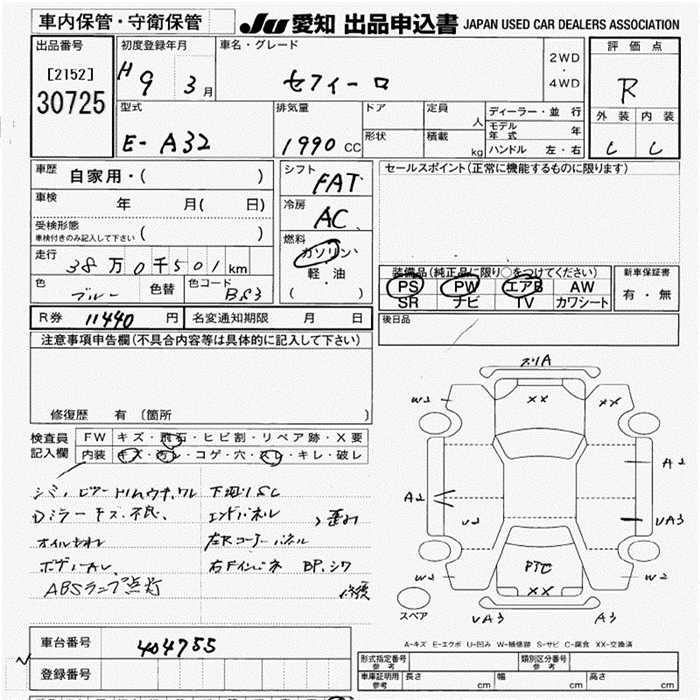 車内保管・守衛保管
JU 愛知 出品申込書 JAPAN USED CAR DEALERS ASSOCIATION
出品番号
[2152]
30725
初度登録年月
H 9 3 月
車名・グレード
セフィーロ
2WD
・
4WD
評価点
R
外装 内装
し し
型式
E- A32
排気量
1990 CC
ドア
定員 人
形状
積載 kg
ディーラー・並行
モデル年式 年
ハンドル 左・右
車歴
自家用・( )
車検
年 月( 日)
受検形態
車検付きのみ記入して下さい ( )
走行
38万0千501 km
色
ブルー
色替
色コード
BS3
シフト
FAT
冷房
AC
燃料
ガソリン・
軽油
( ・ )
セールスポイント(正常に機能するものに限ります)
装備品(純正品に限り○をつけてください)
PS PW エアB AW
SR ナビ TV カワシート
新車保証書
有・無
R券 11440 円
名変通知期限 月 日
後日品
注意事項申告欄(不具合内容等は具体的に記入して下さい)
修復歴 有(箇所 )
検査員
記入欄
FW キズ・飛石・ヒビ割・リペア跡・X要
内装 キズ・汚レ・コゲ・穴・スレ・キレ・破レ
Dミラーキズ・不良、
エンドパネル
オイルモレ
左Rコーナーパネル
右Fインパネ BP、シワ
ABSランプ点灯
修復
ズリA
W2
XX
XX
A2
A2
UA3
W2
PTC
XX
W2
スペア
UA3
A3
A-キズ E-エクボ U-凹み W-補修跡 S-サビ C-腐食 XX-交換済
車台番号
404755
登録番号
形式指定番号
参考
類別区分番号
参考
車庫証明用
参考
長さ cm
幅 cm
高さ cm